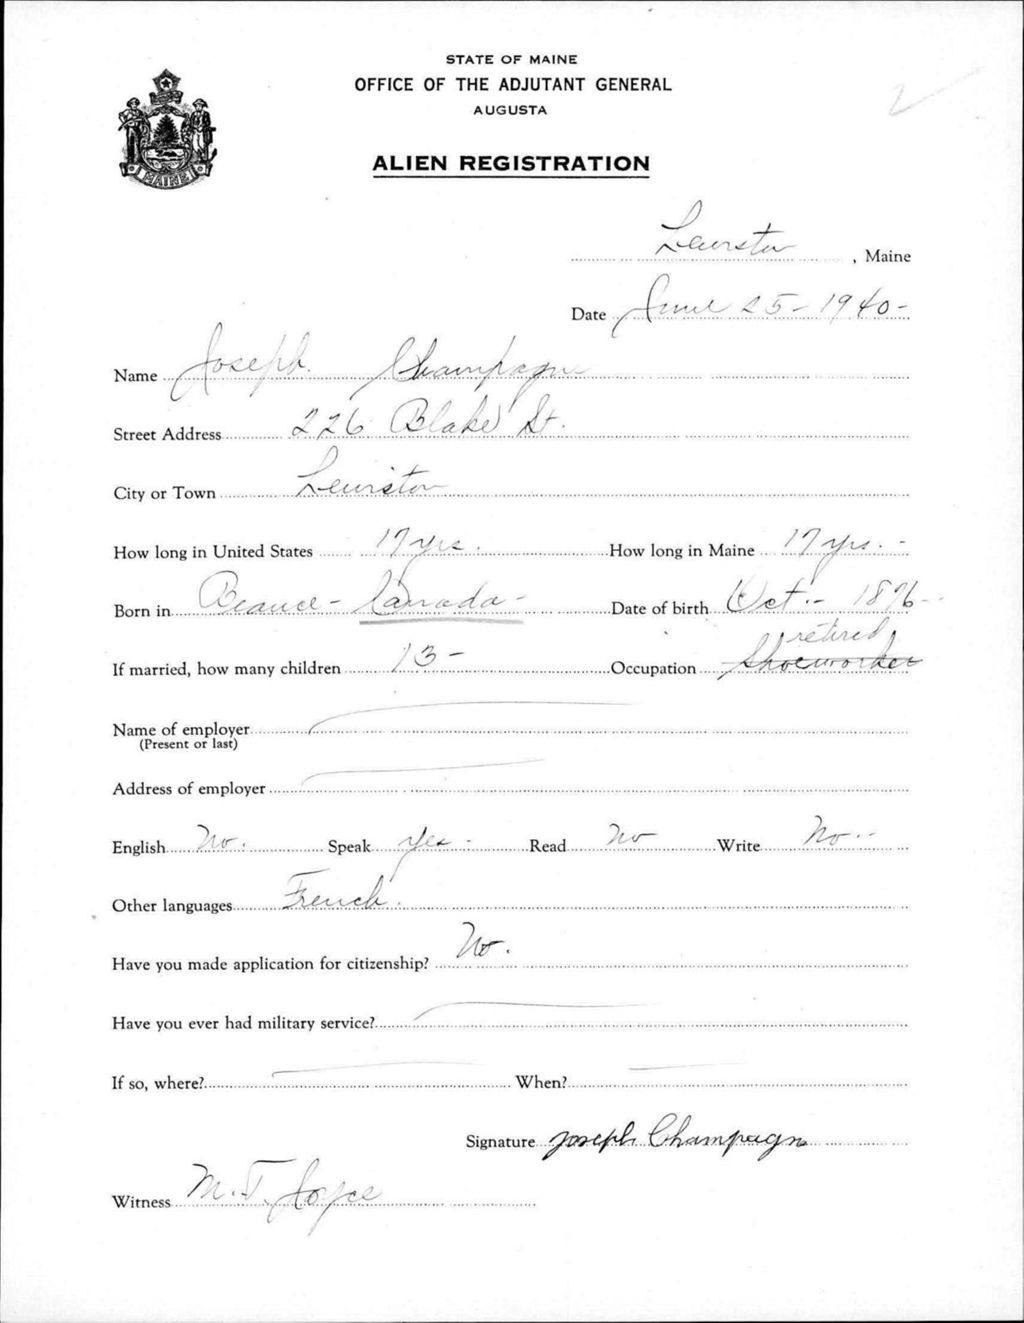 STATE OF MAINE
OFFICE OF THE ADJUTANT GENERAL
AUGUSTA
2
MAINE
ALIEN REGISTRATION
Lewiston, Maine
Date June 25-1940-
Name Joseph Champagne
Street Address 226 Blake St.
City or Town Lewiston
How long in United States 17 yrs. How long in Maine 17 yrs. -
Born in Beauce - Canada - Date of birth Oct. - 1876 -
retired
If married, how many children 13 - Occupation Shoeworker
Name of employer
(Present or last)
Address of employer
English No. Speak Yes - Read No Write No --
Other languages French.
Have you made application for citizenship? No.
Have you ever had military service?
If so, where? When?
Signature Joseph Champagn
Witness M. T. Joyce